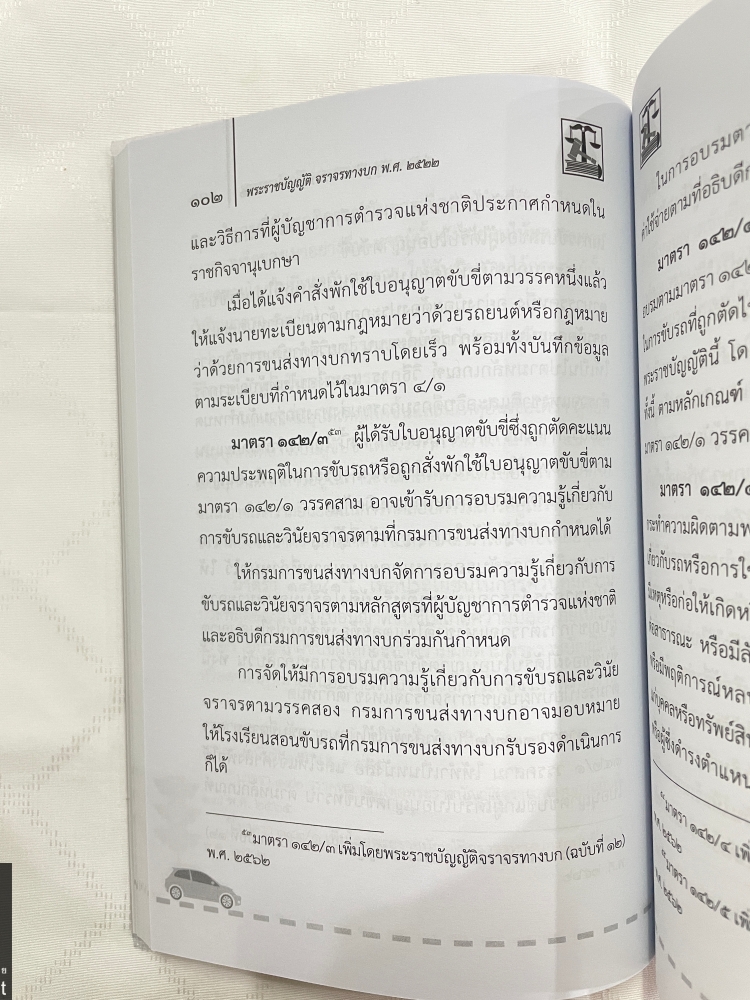 ๑๐๒
พระราชบัญญัติ จราจรทางบก พ.ศ. ๒๕๒๒
และวิธีการที่ผู้บัญชาการตำรวจแห่งชาติประกาศกำหนดใน
ราชกิจจานุเบกษา
เมื่อได้แจ้งคำสั่งพักใช้ใบอนุญาตขับขี่ตามวรรคหนึ่งแล้ว
ให้แจ้งนายทะเบียนตามกฎหมายว่าด้วยรถยนต์หรือกฎหมาย
ว่าด้วยการขนส่งทางบกทราบโดยเร็ว พร้อมทั้งบันทึกข้อมูล
ตามระเบียบที่กำหนดไว้ในมาตรา ๔/๑
มาตรา ๑๔๒/๓๕๓ ผู้ได้รับใบอนุญาตขับขี่ซึ่งถูกตัดคะแนน
ความประพฤติในการขับรถหรือถูกสั่งพักใช้ใบอนุญาตขับขี่ตาม
มาตรา ๑๔๒/๑ วรรคสาม อาจเข้ารับการอบรมความรู้เกี่ยวกับ
การขับรถและวินัยจราจรตามที่กรมการขนส่งทางบกกำหนดได้
ให้กรมการขนส่งทางบกจัดการอบรมความรู้เกี่ยวกับการ
ขับรถและวินัยจราจรตามหลักสูตรที่ผู้บัญชาการตำรวจแห่งชาติ
และอธิบดีกรมการขนส่งทางบกร่วมกันกำหนด
การจัดให้มีการอบรมความรู้เกี่ยวกับการขับรถและวินัย
จราจรตามวรรคสอง กรมการขนส่งทางบกอาจมอบหมาย
ให้โรงเรียนสอนขับรถที่กรมการขนส่งทางบกรับรองดำเนินการ
ก็ได้
๕๓มาตรา ๑๔๒/๓ เพิ่มโดยพระราชบัญญัติจราจรทางบก (ฉบับที่ ๑๒)
พ.ศ. ๒๕๖๒
ในการอบรมตา
ค่าใช้จ่ายตามที่อธิบดีก
มาตรา ๑๔๒/๔
อบรมตามมาตรา ๑๔๒
ในการขับรถที่ถูกตัดไ
พระราชบัญญัตินี้ โด
ทั้งนี้ ตามหลักเกณฑ์
มาตรา ๑๔๒/๑ วรรค
มาตรา ๑๔๒/๕
กระทำความผิดตามพ
เกี่ยวกับรถหรือการใ
มีเหตุหรือก่อให้เกิดห
ต่อสาธารณะ หรือมีลั
หรือมีพฤติการณ์หลบ
แก่บุคคลหรือทรัพย์สิน
หรือผู้ซึ่งดำรงตำแหน
มาตรา ๑๔๒/๔ เพิ่
พ.ศ. ๒๕๖๒
มาตรา ๑๔๒/๕ เพิ่
พ.ศ. ๒๕๖๒
ย
t